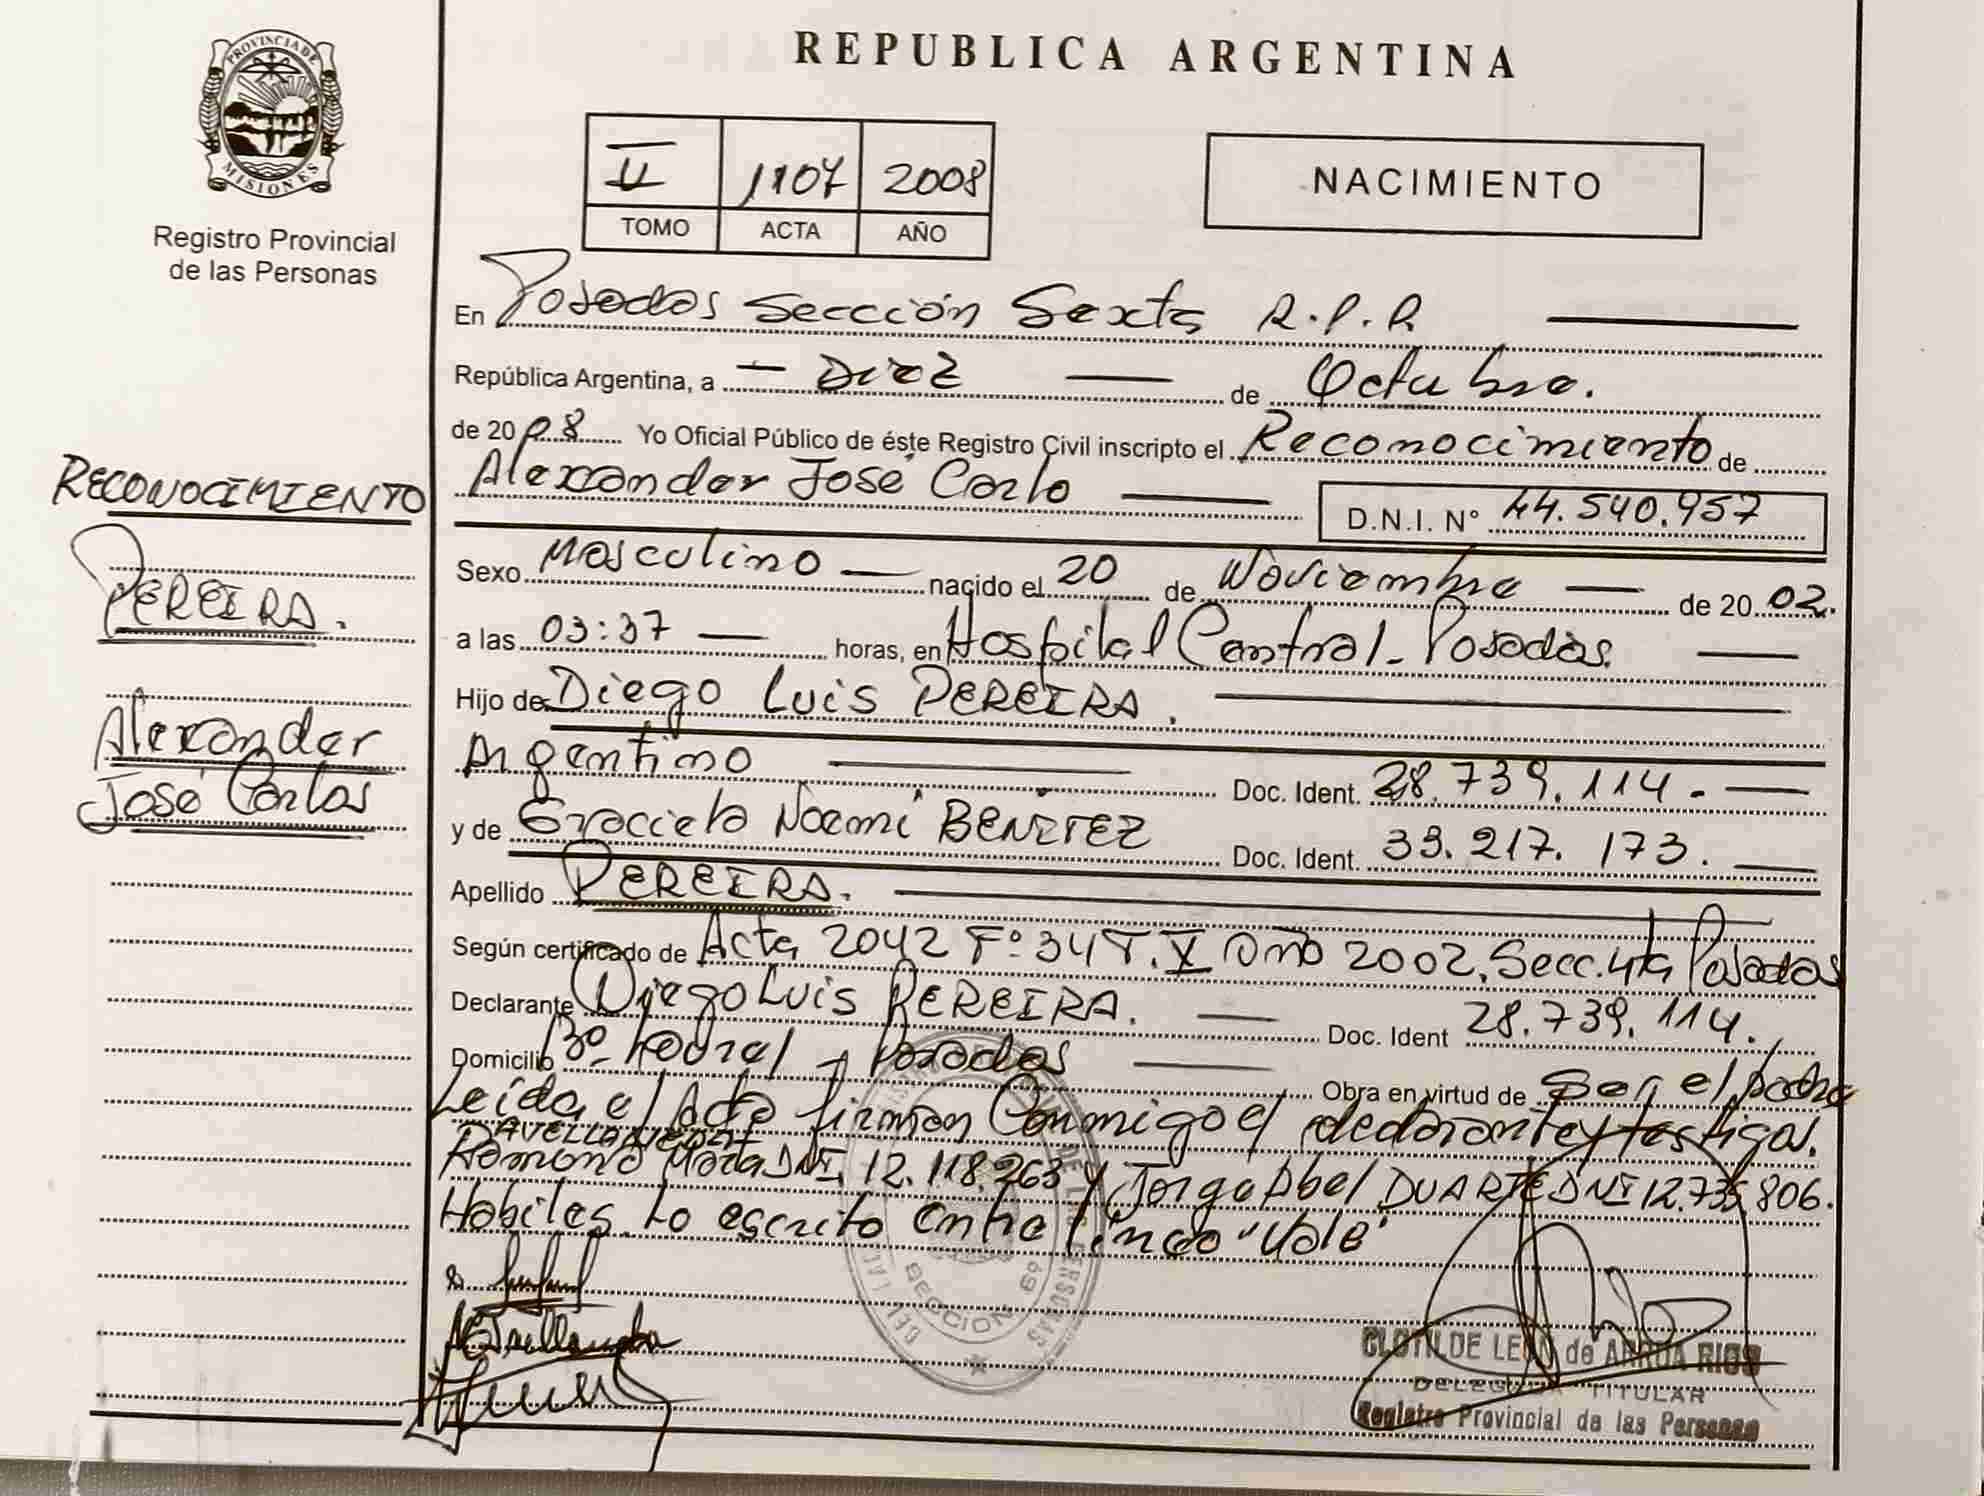 PROVINCIA DE
MISIONES
Registro Provincial
de las Personas
REPUBLICA ARGENTINA
II 1107 2008
TOMO ACTA AÑO
NACIMIENTO
En Posadas Sección Sexta R.P.P.
República Argentina, a Diez de Octubre.
de 2008 Yo Oficial Público de éste Registro Civil inscripto el Reconocimiento de
Alexander José Carlo D.N.I. N° 44.540.957
Sexo Masculino nacido el 20 de Noviembre de 2002.
a las 03:37 horas, en Hospital Central - Posadas.
Hijo de Diego Luis PEREIRA.
Argentino Doc. Ident. 28.739.114.-
y de Graciela Noemí BENITEZ Doc. Ident. 33.217.173.
Apellido PEREIRA.
Según certificado de Acta 2042 Fº 34 T. V Año 2002. Secc. 4ta Posadas
Declarante Diego Luis PEREIRA. Doc. Ident 28.739.114.
Domicilio Bº Posadas Obra en virtud de Ser el padre
Leída el Acta firman Conmigo el declarante y testigos.
AVELLANEDA
Ramona María DNI. 12.118.263 y Jorge Abel DUARTE DNI 12.735.806.
Hábiles. Lo escrito entre línea "Vale"
RECONOCIMIENTO
PEREIRA.
Alexander
José Carlos
SECCION 6º
CLOTILDE LEON de ARRUA RIOS
DELEGADA TITULAR
Registro Provincial de las Personas